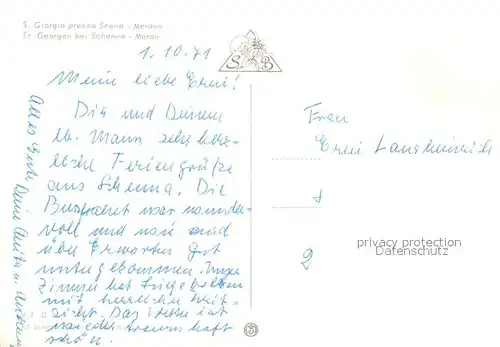 S. Giorgio presso Scena - Merano
St. Georgen bei Schenna - Meran
S B
1.10.71
Meine liebe Erni!
Dir und Deinem
lb. Mann sehr herz-
liche Feriengrüße
aus Schenna. Die
Busfahrt war wunder-
voll und wir sind
über Erwarten gut
untergekommen. Unser
Zimmer hat
mit herrlichem Weit-
Das Wetter ist
wieder traumhaft
schön.
Alles Gute Deine
Frau
Erni
privacy protection
Datenschutz